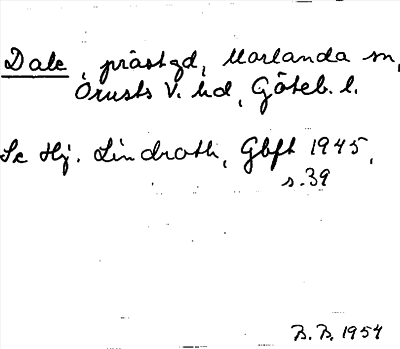 Dale, prästgd, Morlanda sn,
Orusts V. hd, Göteb. l.
Se Hj. Lindroth, Gbft 1945,
s. 39
B. B. 1954